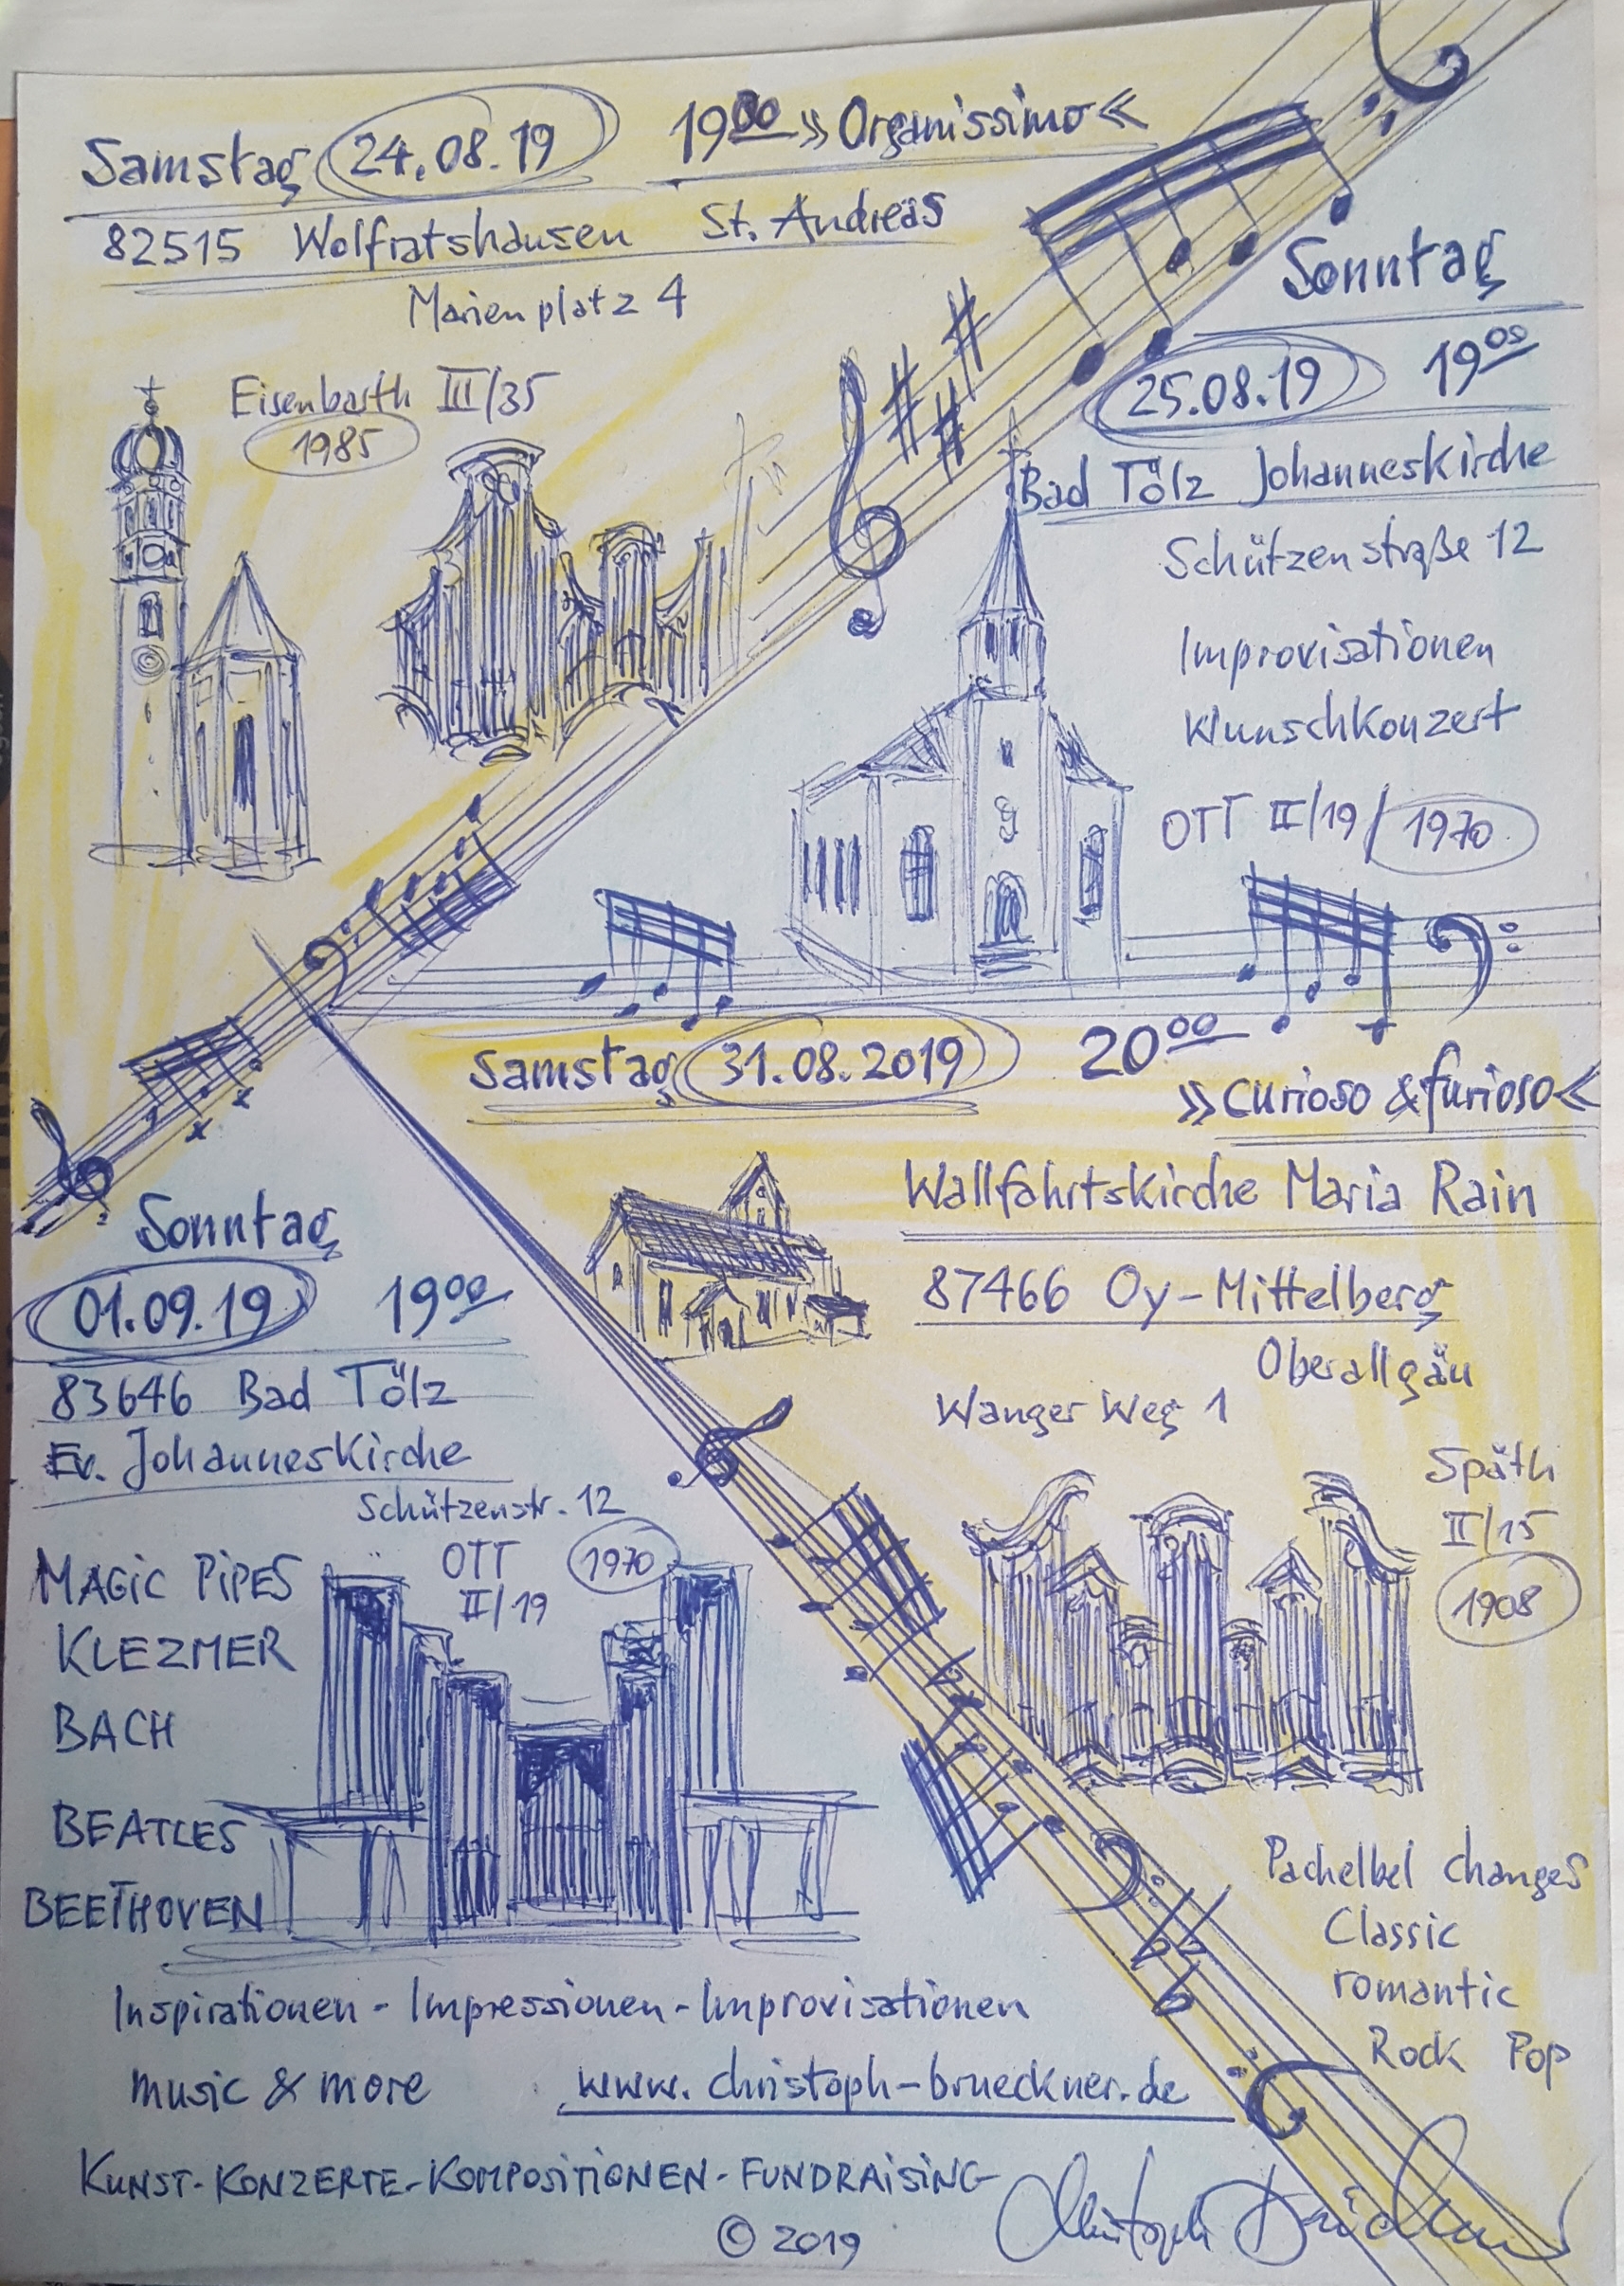 Samstag 24.08.19 19⁰⁰ »Organissimo«
82515 Wolfratshausen St. Andreas
Marienplatz 4
Eisenbarth III/35
1985
Sonntag
25.08.19 19⁰⁰
Bad Tölz Johanneskirche
Schützenstraße 12
Improvisationen
Wunschkonzert
OTT II/19/1970
Samstag 31.08.2019 20⁰⁰
»curioso & furioso«
Wallfahrtskirche Maria Rain
87466 Oy-Mittelberg
Oberallgäu
Wanger Weg 1
Späth
II/15
1908
Pachelbel changes
Classic
romantic
Rock Pop
Sonntag
01.09.19 19⁰⁰
83646 Bad Tölz
Ev. Johanneskirche
Schützenstr. 12
OTT 1970
II/19
MAGIC PIPES
KLEZMER
BACH
BEATLES
BEETHOVEN
Inspirationen - Impressionen - Improvisationen
music & more www.christoph-brueckner.de
KUNST-KONZERTE-KOMPOSITIONEN-FUNDRAISING
© 2019 Christoph Brückner